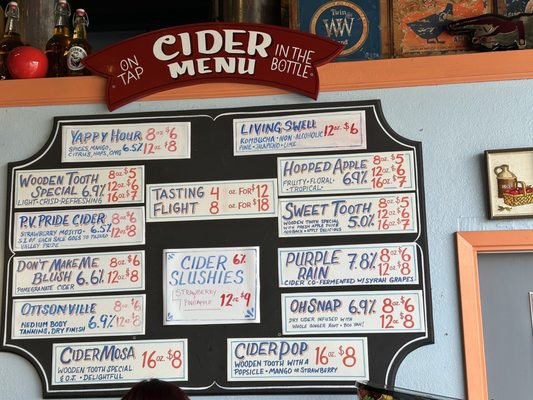 ON TAP
CIDER
MENU
IN THE BOTTLE
W
YAPPY HOUR 8oz $6
SPICES, MANGO,
CITRUS, HOPS, OMG 6.5% 12oz $8
LIVING SWELL 12oz $6
KOMBUCHA · NON-ALCOHOLIC
PINE · JALAPEÑO · LIME
WOODEN TOOTH 8oz $5
SPECIAL 6.9% 12oz $6
LIGHT - CRISP - REFRESHING 16oz $7
TASTING 4 oz FOR $12
FLIGHT 8 oz FOR $18
HOPPED APPLE 8oz $5
FRUITY · FLORAL 6.9% 12oz $6
· TROPICAL · 16oz $7
P.V. PRIDE CIDER 8oz $6
STRAWBERRY MOJITO 5.9% 12oz $8
$.25 OF EACH SALE GOES TO PAJARO
VALLEY PRIDE
SWEET TOOTH 8oz $5
WOODEN TOOTH SPECIAL 5.0% 12oz $6
WITH FRESH APPLE JUICE
BACKSWEET · APPLY DELICIOUS 16oz $7
DON'T MAKE ME 8oz $6
BLUSH 6.6% 12oz $8
POMEGRANATE CIDER
CIDER 6%
SLUSHIES
STRAWBERRY
PINEAPPLE 12oz $9
PURPLE 7.8% 8oz $6
RAIN 12oz $8
CIDER CO-FERMENTED W/SYRAH GRAPES
OTTSONVILLE 8oz $6
MEDIUM BODY 6.9% 12oz $8
TANNINS, DRY FINISH
OHSNAP 6.9% 8oz $6
DRY CIDER INFUSED WITH 12oz $8
WHOLE GINGER ROOT · BOO YAH!
CIDERMOSA 16oz $8
WOODEN TOOTH SPECIAL
& O.J. · DELIGHTFUL
CIDERPOP 16oz $8
WOODEN TOOTH WITH A
POPSICLE · MANGO OR STRAWBERRY